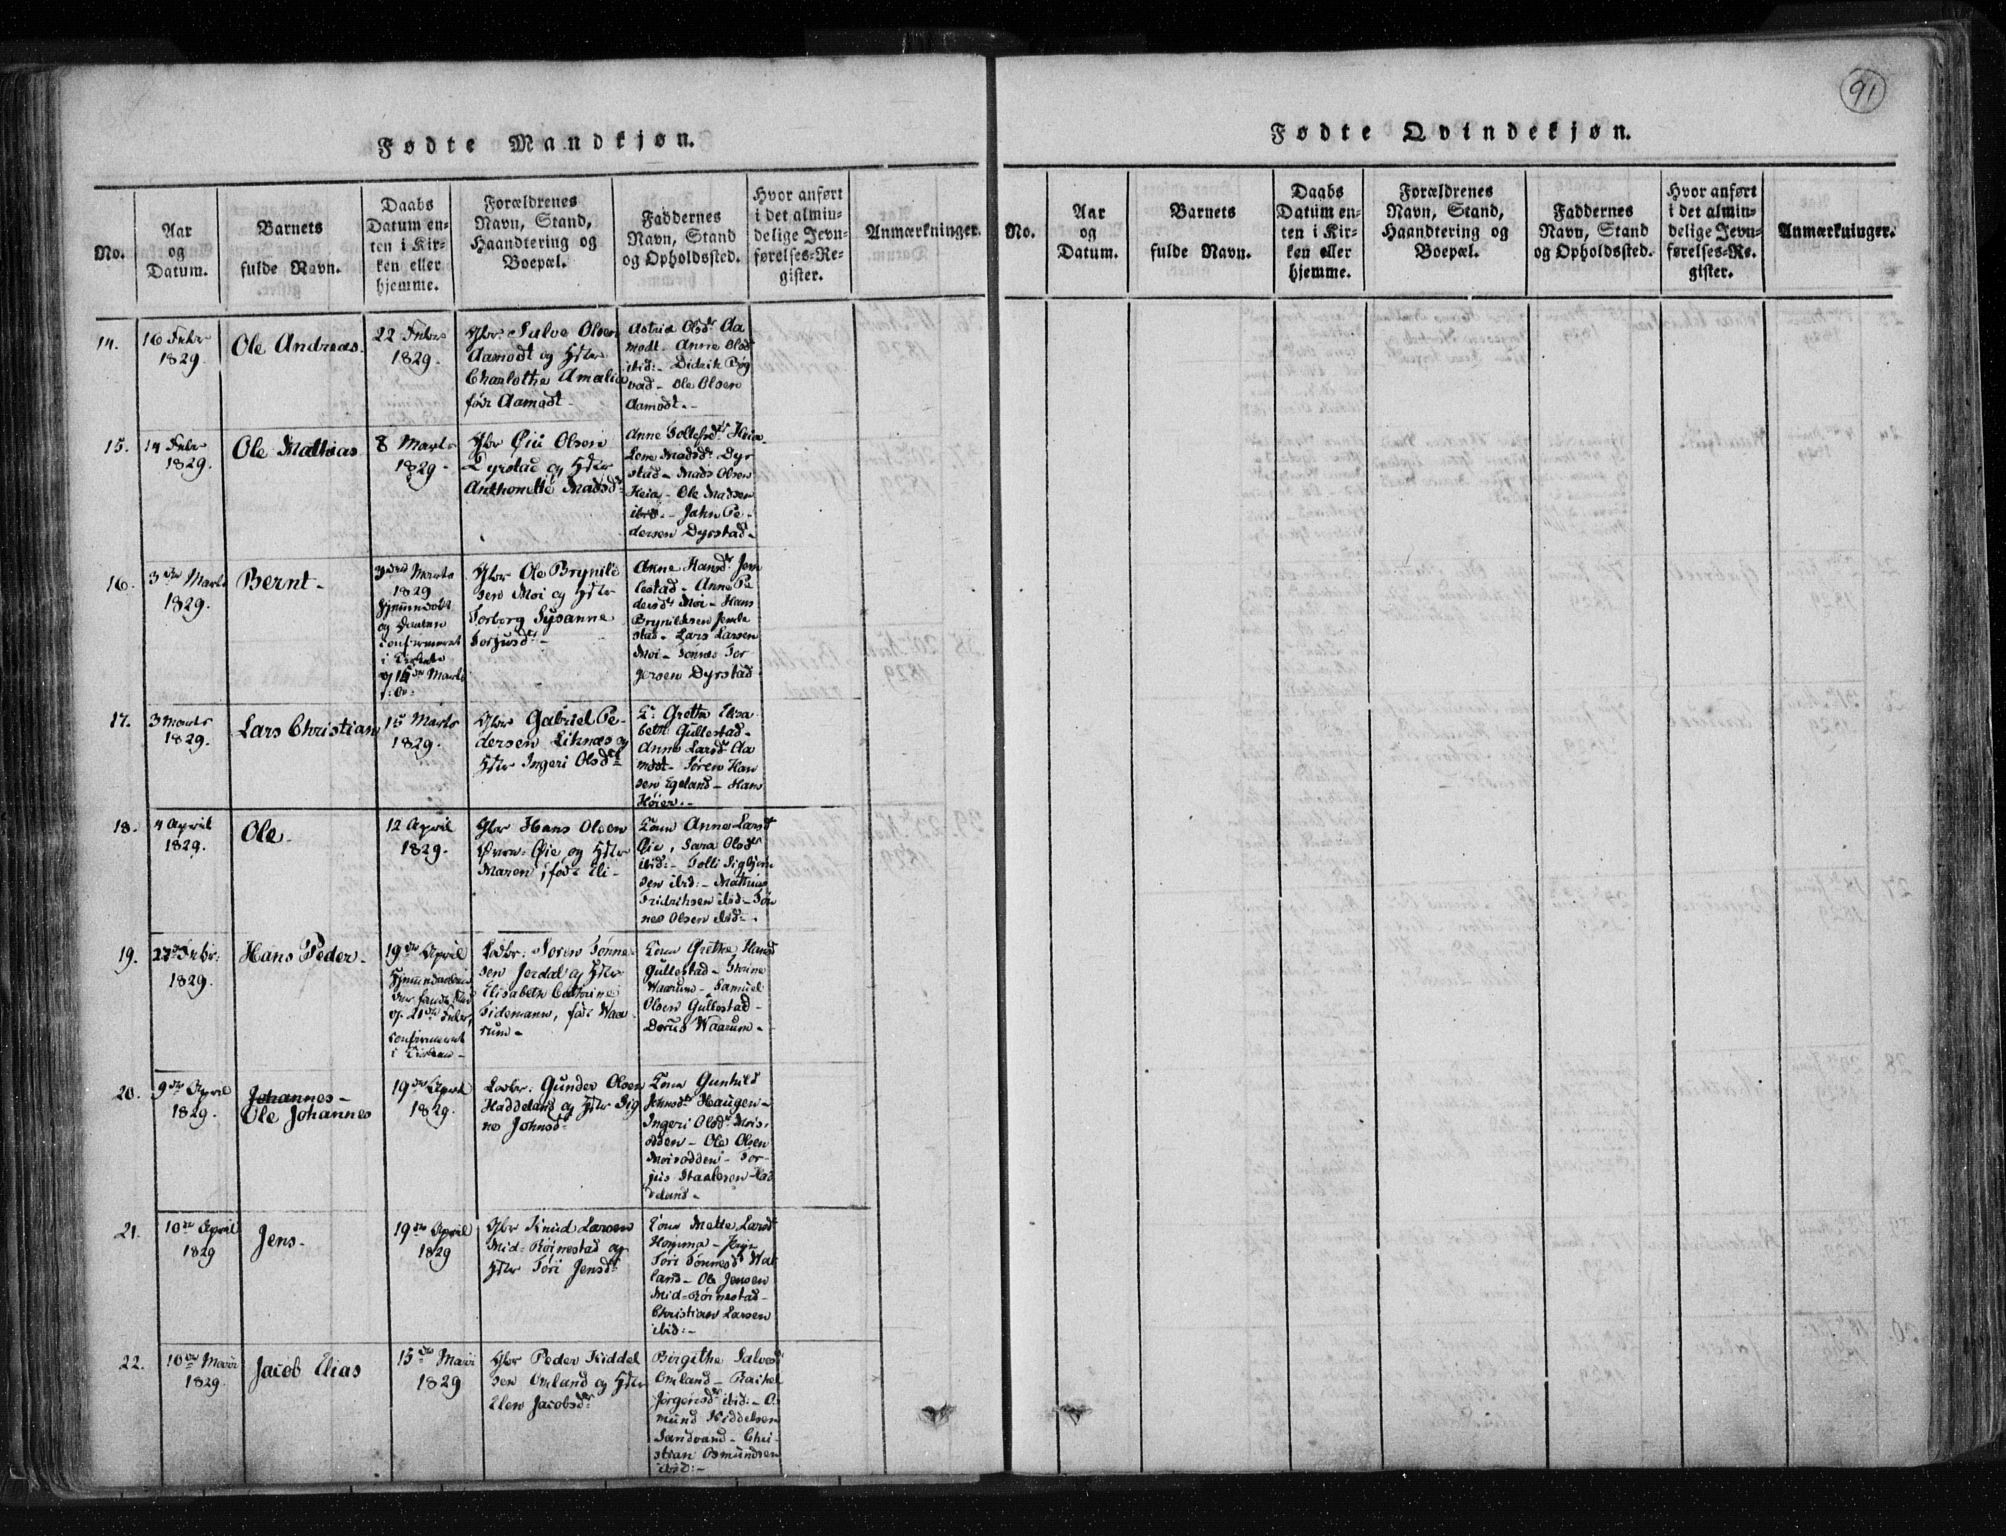 91
Fødte Mandkjøn.
No.
Aar
og
Datum.
Barnets
fulde Navn.
Daabs
Datum en-
ten i Kir-
ken eller
hjemme.
Forældrenes
Navn, Stand,
Haandtering og
Boepæl.
Faddernes
Navn, Stand
og Opholdssted.
Hvor anført
i det almin-
delige Jevn-
førelses-Re-
gister.
Anmærkninger.
14.
16 Febr
1829.
Ole Andreas.
22 Febr
1829.
Salve Olsen
Aamodt og
Charlotha Amalia
født Aamodt
Astrid Olsdr Aa
modt. Anne Olsd
ibid:- Didrik Bøg
vad- Ole Olsen
Aamodt.-
15.
14 Febr
1829.
Ole Mathias
8 Marts
1829-
Øie Olsen
Dyrstad og
Anthonette Madsdr
Anne Tollefsdr Heia
Lene Madsdr Dyr
stad- Mads Olsen
Heia- Ole Madsen
ibid.- Jahn Pe-
dersen Dyrstad-
16.
3die Marts
1829.
Bernt-
3die Marts
1829
Hjemmedøbt
og Daaben
confirmeret
i Kirken
15de Marts
Ole Brynild
sen Moi og
Torborg Sysanne
Torjusdr-
Anne Hansdr Jem
lestad- Anne Pe
dersdr Moi- Hans
Brynildsen Jemle
stad- Lars Larsen
Moi- Tønnes Tor
gersen Dyrstad
17.
3 Marts
1829.
Lars Christian
15 Marts
1829.
Gabriel Pe-
dersen Liknæs og
Ingeri Olsdr
K: Grethe Elisa
beth Gullestad-
Anne Larsdr Aa
modt- Søren Han
sen Egeland- Hans
Høier.-
18.
4 April
1829.
Ole.
12 April
1829.
Hans Olsen
Øvre-Øie og
Maren, født Eli-
Kone Anne Larsd
Øie, Sara Olsdr
ibid:- Tolli Sigbjørn
sen ibid:- Mathias
Fridrihsen ibid:- Tøn
nes Olsen ibid:-
19.
27 Febr:
1829.
Hans Peder-
19de April
21de Febr,
confirmeret
i Kirken-
Ladbr: Soren Tønne
sen Jerdal og
Elisabeth Cathrine
Tidemann, født Waa
rum-
Kone Grethe Hansd
Gullestad- Stine
Waarum- Samuel
Olsen Gullestad-
Dorus Waarum-
20.
9de April
1829.
Johannes-
Ole Johannes
19de April
1829.
Ladbr: Gunder Olsen
Haddeland og Sig
ne Johnsdr
Kone Gunhild
Johnsdr Haugen-
Ingeri Olsdr Mois-
odden- Ole Olsen
Moisodden- Tor-
jus Staalesen Had
deland-
21.
10de April
1829
Jens-
19de April
1829
Knud Larsen
Mid-Røinestad og
Tori Jensdr
Kone Mette Larsdr
Homma- Pige
Tori Tønnesdr Wat
land- Ole Jensen
Mid-Røinestad-
Christian Larsen
ibid:-
22.
10de Marti
1829.
Jacob Elias
15de Marti
1829
Peder Kiddel
sen Omland og
Elen Jacobsdr
Birgithe Salvesd
Omland- Rachel
Jørgensdr ibid:- Os
mund Kiddelsen
Sandvand- Chri-
stian Osmundsen
ibid:-
Fødte Qvindekjøn.
No.
Aar
og
Datum.
Barnets
fulde Navn.
Daabs
Datum en-
ten i Kir-
ken eller
hjemme.
Forældrenes
Navn, Stand,
Haandtering og
Boepæl.
Faddernes
Navn, Stand
og Opholdssted.
Hvor anført
i det almin-
delige Jevn-
førelses-Re-
gister.
Anmærkninger.